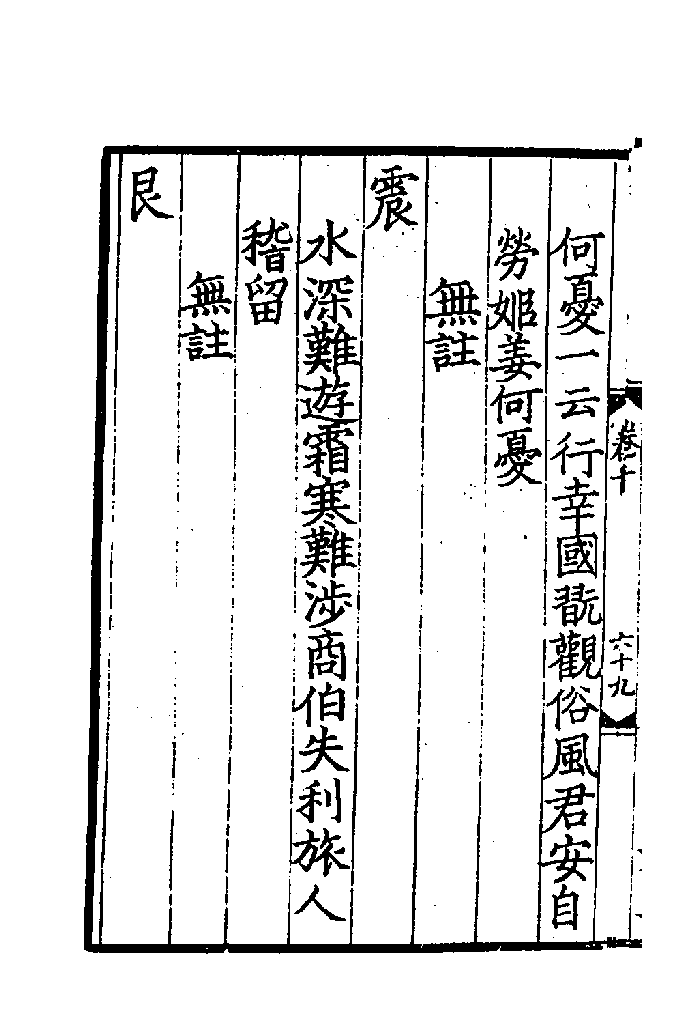 卷十
六十九
何憂一云行幸國翫觀俗風君安自
勞姬姜何憂
無註
震
水深難遊霜寒難涉商伯失利旅人
稽留
無註
艮